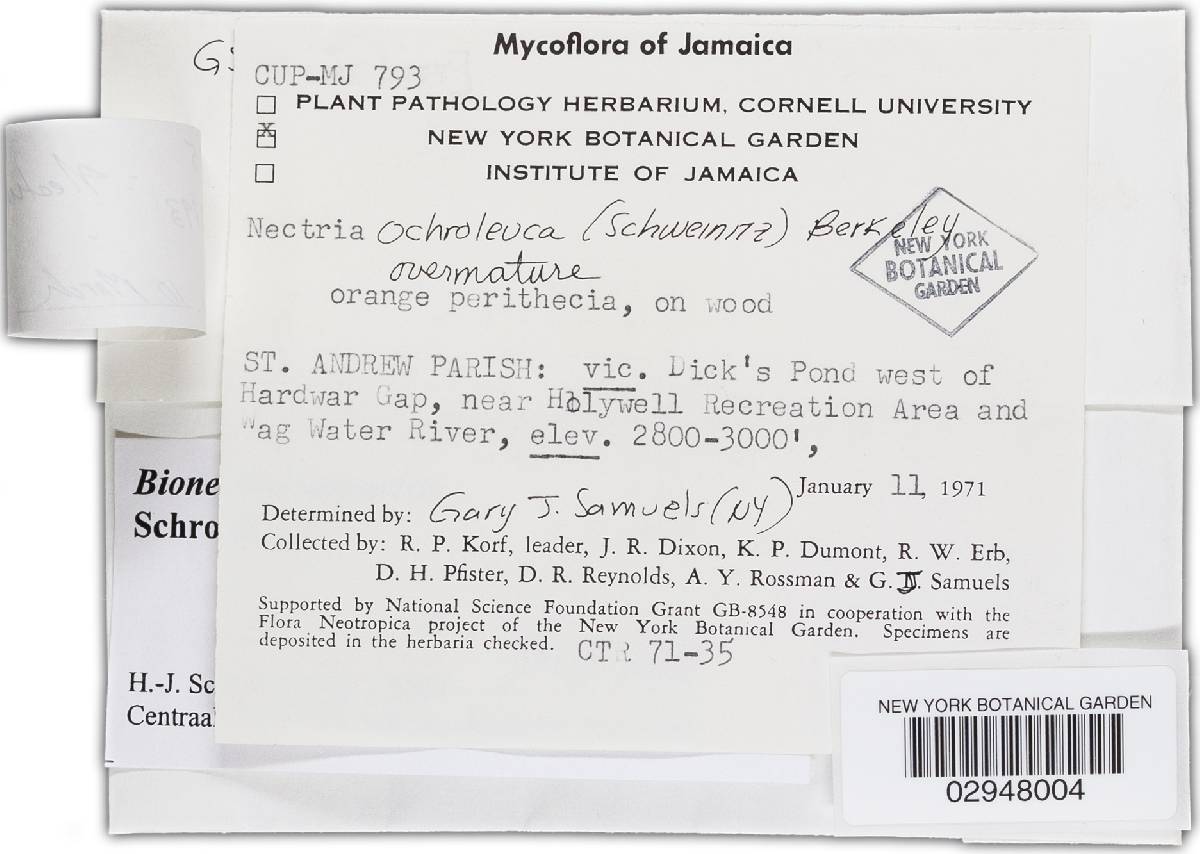 Mycoflora of Jamaica
CUP-MJ 793
PLANT PATHOLOGY HERBARIUM, CORNELL UNIVERSITY
x NEW YORK BOTANICAL GARDEN
INSTITUTE OF JAMAICA
Nectria ochroleuca (Schweinitz) Berkeley
overmature
orange perithecia, on wood
NEW YORK
BOTANICAL
GARDEN
ST. ANDREW PARISH: vic. Dick's Pond west of
Hardwar Gap, near Holywell Recreation Area and
Wag Water River, elev. 2800-3000',
January 11, 1971
Determined by: Gary J. Samuels (NY)
Collected by: R. P. Korf, leader, J. R. Dixon, K. P. Dumont, R. W. Erb,
D. H. Pfister, D. R. Reynolds, A. Y. Rossman & G. J. Samuels
Supported by National Science Foundation Grant GB-8548 in cooperation with the
Flora Neotropica project of the New York Botanical Garden. Specimens are
deposited in the herbaria checked. CTR 71-35
Bione
Schro
H.-J. Sc
Centraal
NEW YORK BOTANICAL GARDEN
02948004